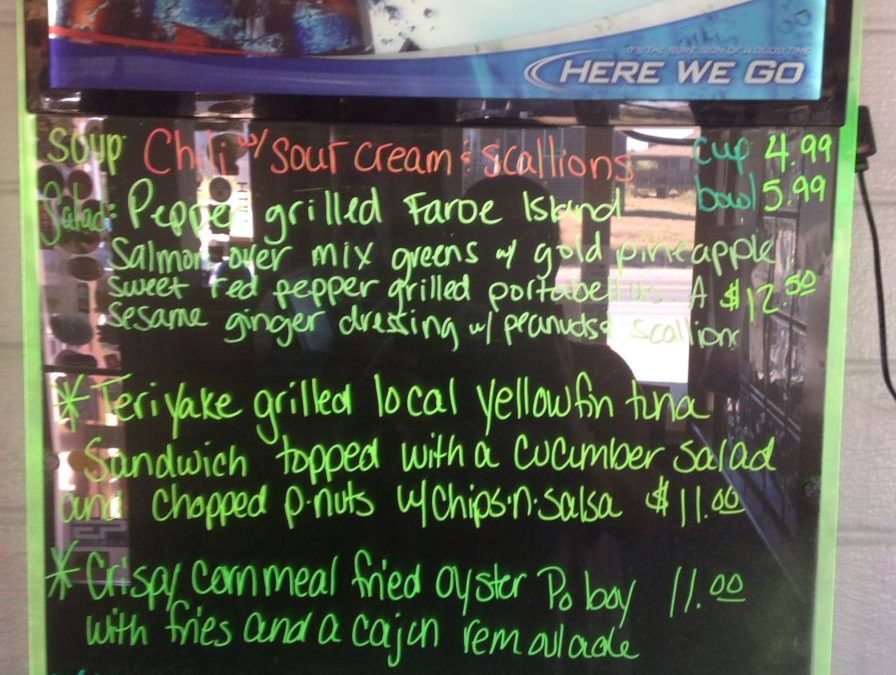 IT'S THE SURE SIGN OF A GOOD TIME
HERE WE GO
Soup: Chili w/ sour cream & scallions cup 4.99
bowl 5.99
Salad: Pepper grilled Faroe Island
Salmon over mix greens w/ gold pineapple,
sweet red pepper grilled portabellas. A $12.50
sesame ginger dressing w/ peanuds & scallions
* Teriyake grilled local yellowfin tuna
Sandwich topped with a cucumber salad
and chopped p-nuts w/ chips-n-salsa $11.00
* Crispy cornmeal fried oyster Po boy 11.00
with fries and a cajun remoulade